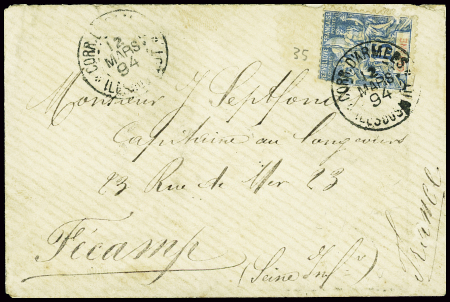 CORR. D'ARMÉES
12
MARS
94
35
CORR. D'ARMÉES
12
MARS
94
Monsieur J. Septfond
Capitaine au long cours
23 Rue de Mer 23
Fécamp
(Seine Infre)
France